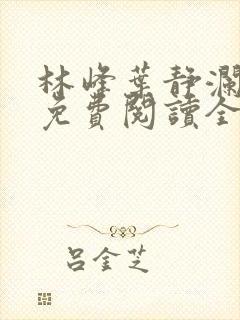 林峰葉靜瀾
免費閱讀全
呂金芝